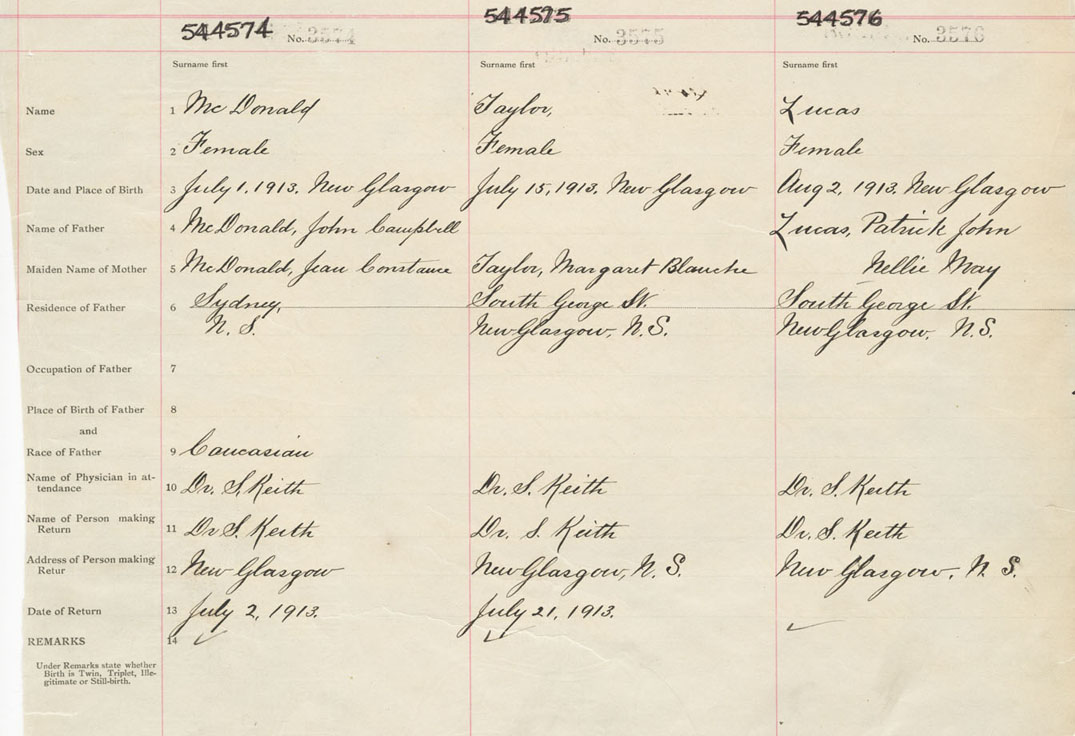 544574 No. 3574 544575 No. 3575 544576 No. 3576
Surname first Surname first Surname first
Name 1 Mc Donald Taylor, Lucas
Sex 2 Female Female Female
Date and Place of Birth 3 July 1, 1913. New Glasgow July 15, 1913. New Glasgow Aug 2, 1913. New Glasgow
Name of Father 4 McDonald, John Campbell Lucas, Patrick John
Maiden Name of Mother 5 McDonald, Jean Constance Taylor, Margaret Blanche Nellie May
Residence of Father 6 Sydney, South George St. South George St.
N. S. New Glasgow, N.S. New Glasgow, N.S.
Occupation of Father 7
Place of Birth of Father 8
and
Race of Father 9 Caucasian
Name of Physician in at-
tendance 10 Dr. S. Keith Dr. S. Keith Dr. S. Keith
Name of Person making
Return 11 Dr S. Keith Dr. S. Keith Dr. S. Keith
Address of Person making
Retur 12 New Glasgow New Glasgow, N. S. New Glasgow, N. S.
Date of Return 13 July 2, 1913. July 21, 1913.
REMARKS 14
Under Remarks state whether
Birth is Twin, Triplet, Ille-
gitimate or Still-birth.